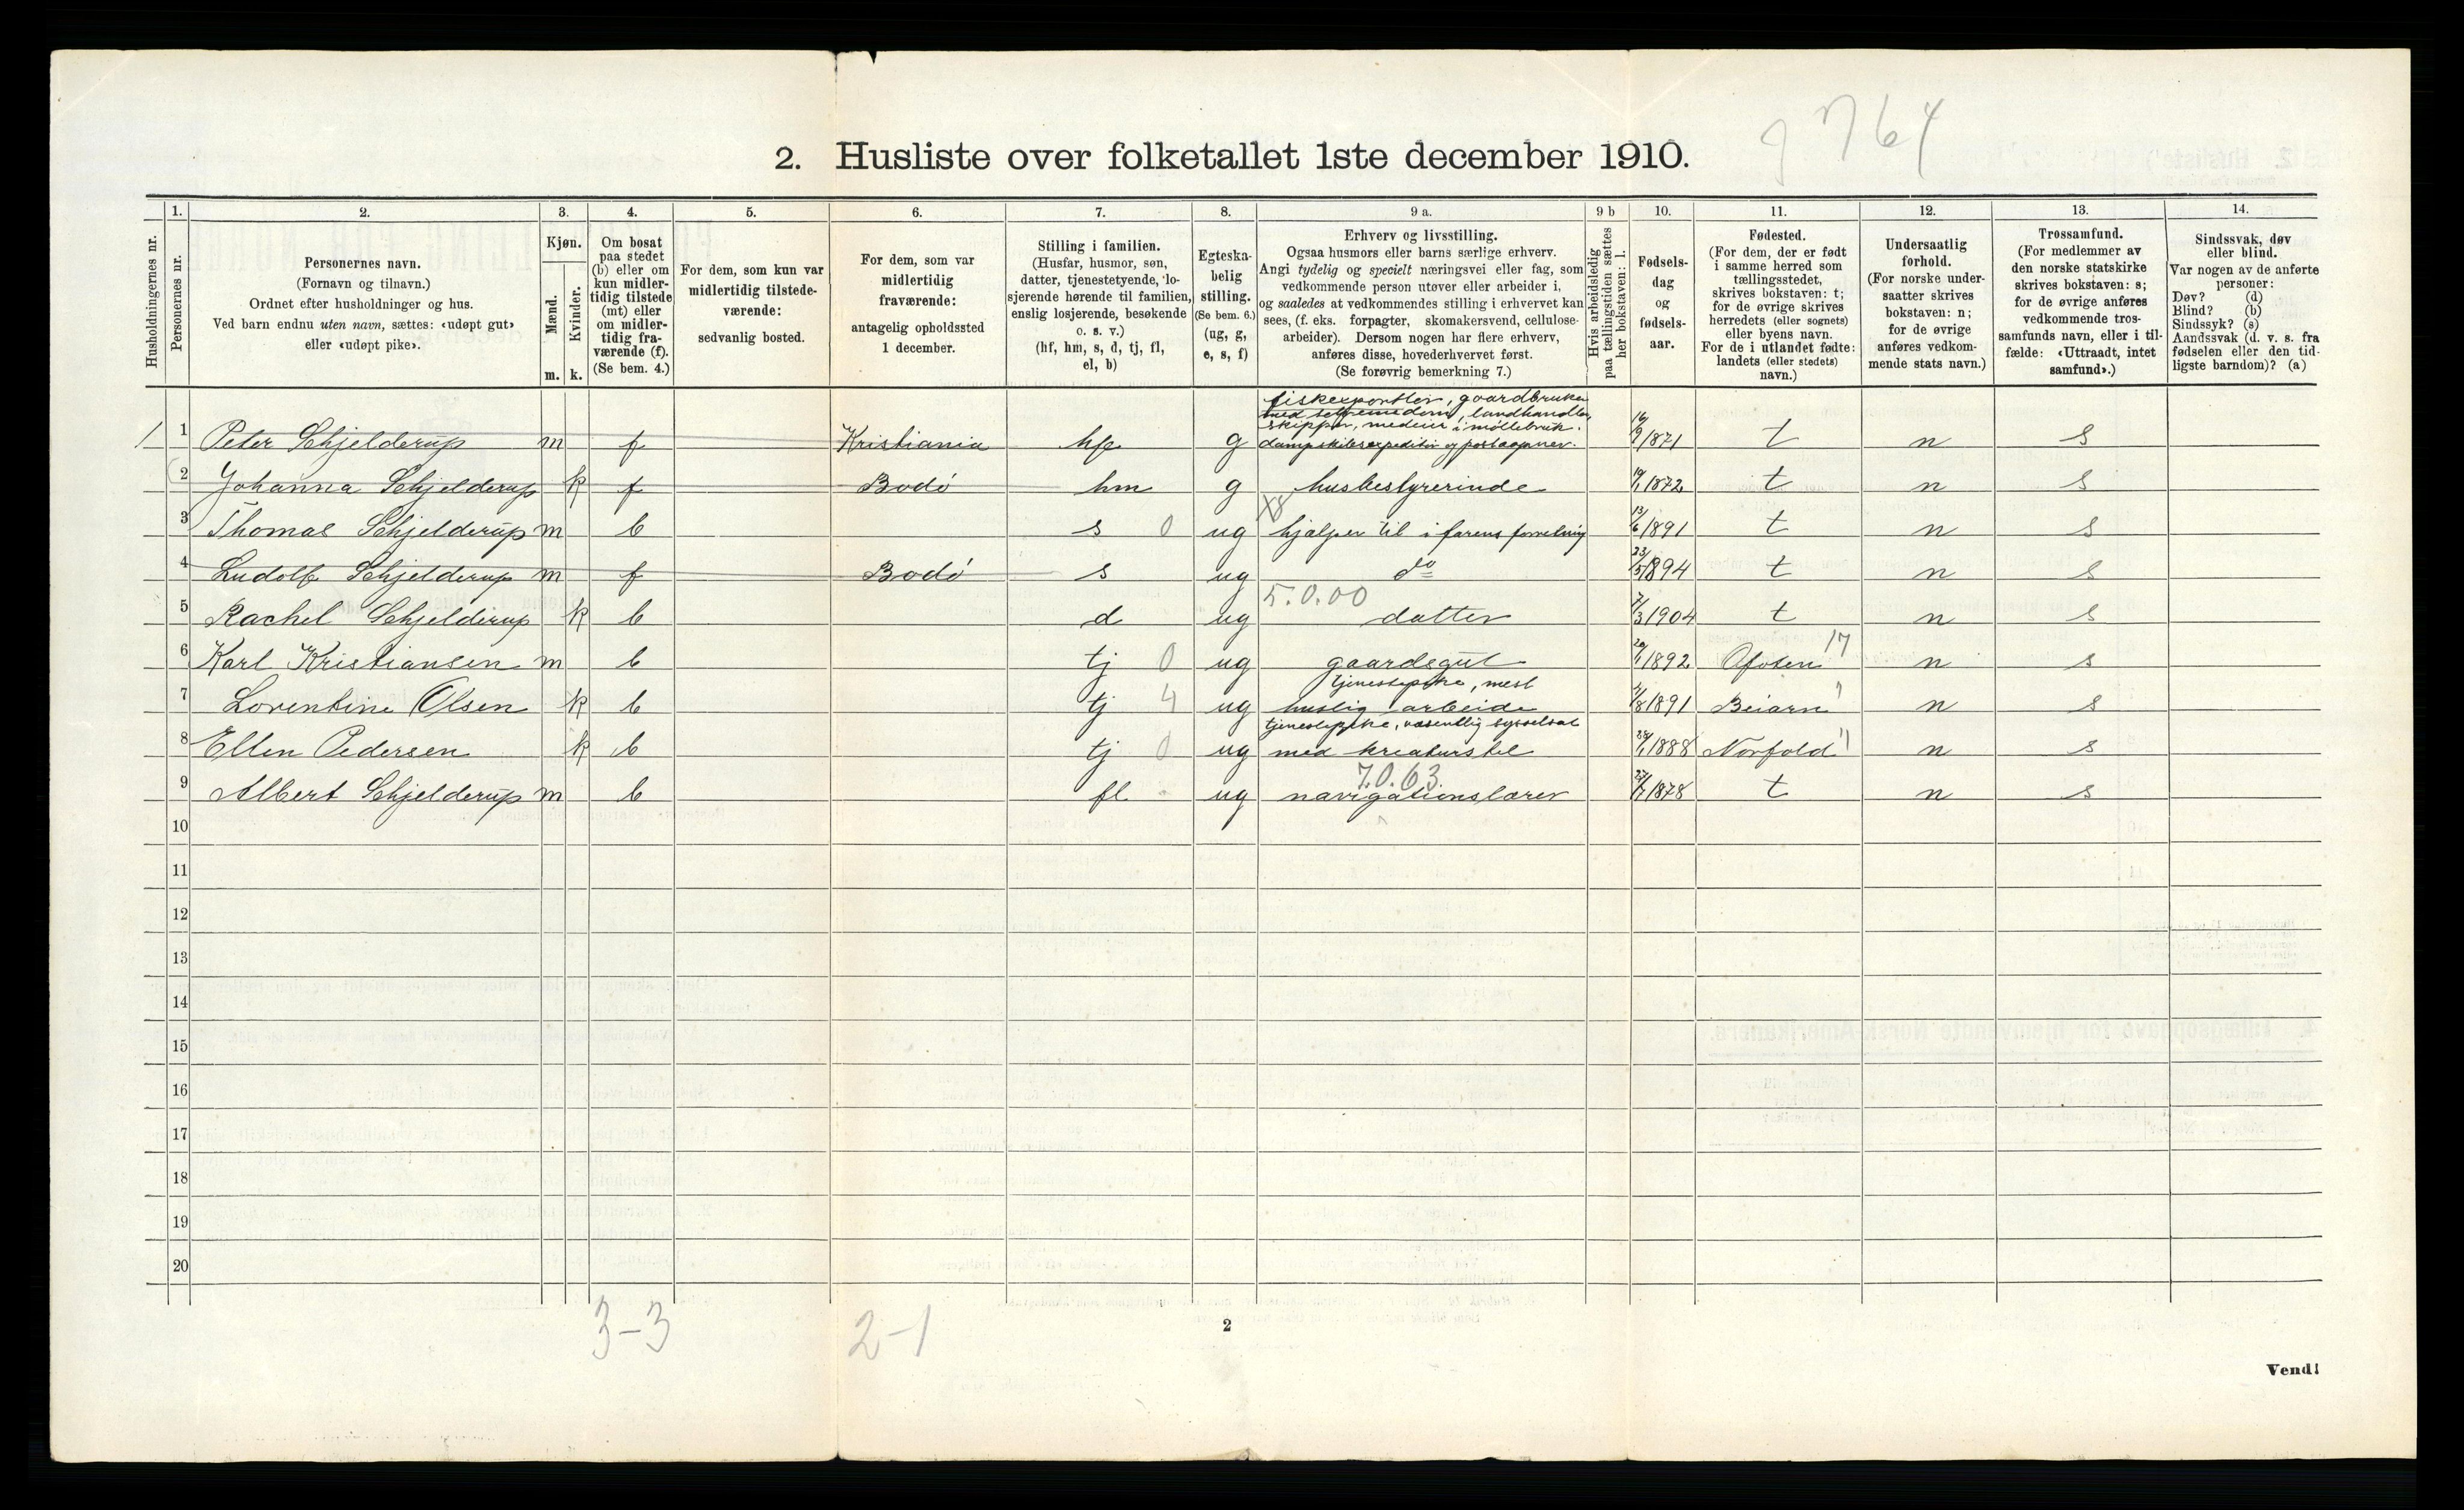 g 7764
2. Husliste over folketallet 1ste december 1910.
Husholdningernes nr.
1.
Personernes nr.
2.
Personernes navn.
(Fornavn og tilnavn.)
Ordnet efter husholdninger og hus.
Ved barn endnu uten navn, sættes: «udøpt gut»
eller «udøpt pike».
3.
Kjøn.
Mænd.
Kvinder.
m. k.
4.
Om bosat
paa stedet
(b) eller om
kun midler-
tidig tilstede
(mt) eller
om midler-
tidig fra-
værende (f).
(Se bem. 4.)
5.
For dem, som kun var
midlertidig tilstede-
værende:
sedvanlig bosted.
6.
For dem, som var
midlertidig
fraværende:
antagelig opholdssted
1 december.
7.
Stilling i familien.
(Husfar, husmor, søn,
datter, tjenestetyende, lo-
sjerende hørende til familien,
enslig losjerende, besøkende
o. s. v.)
(hf, hm, s, d, tj, fl,
el, b)
8.
Egteska-
belig
stilling.
(Se bem. 6.)
(ug, g,
e, s, f)
9 a.
Erhverv og livsstilling.
Ogsaa husmors eller barns særlige erhverv.
Angi tydelig og specielt næringsvei eller fag, som
vedkommende person utøver eller arbeider i,
og saaledes at vedkommendes stilling i erhvervet kan
sees, (f. eks. forpagter, skomakersvend, cellulose-
arbeider). Dersom nogen har flere erhverv,
anføres disse, hovederhvervet først.
(Se forøvrig bemerkning 7.)
9 b
Hvis arbeidsledig
paa tællingstiden sættes
her bokstaven: l.
10.
Fødsels-
dag
og
fødsels-
aar.
11.
Fødested.
(For dem, der er født
i samme herred som
tællingsstedet,
skrives bokstaven: t;
for de øvrige skrives
herredets (eller sognets)
eller byens navn.
For de i utlandet fødte:
landets (eller stedets)
navn.)
12.
Undersaatlig
forhold.
(For norske under-
saatter skrives
bokstaven: n;
for de øvrige
anføres vedkom-
mende stats navn.)
13.
Trossamfund.
(For medlemmer av
den norske statskirke
skrives bokstaven: s;
for de øvrige anføres
vedkommende tros-
samfunds navn, eller i til-
fælde: «Uttraadt, intet
samfund».)
14.
Sindssvak, døv
eller blind.
Var nogen av de anførte
personer:
Døv? (d)
Blind? (b)
Sindssyk? (s)
Aandssvak (d. v. s. fra
fødselen eller den tid-
ligste barndom)? (a)
fiskeexportør, gaardbruker
med selveiendom, landhandler,
skipper, medeier i møllebruk.
1 1 Peter Schjelderup m f Kristiania hf g dampskibsexpeditør og postaapner. 16/9 1871 t n s
2 Johanna Schjelderup k f Bodø hm g husbestyrerinde 19/1 1872 t n s
3 Thomas Schjelderup m b s 0 ug hjælper til i farens forretning 13/6 1891 t n s
4 Ludolf Schjelderup m f Bodø s ug do 23/5 1894 t n s
5.0.00
5 Rachel Schjelderup k b d ug datter 7/3 1904 t n s
6 Karl Kristiansen m b tj 0 ug gaardsgut 29/1 1892 Ofoten 17 n s
tjenestepike, mest
7 Lorentine Olsen k b tj 4 ug huslig arbeide 4/8 1891 Beiarn " n s
tjenestepike, væsentlig sysselsat
8 Ellen Pedersen k b tj 0 ug med kreaturstel 28/1 1888 Norfold " n s
7.0.63.
9 Albert Schjelderup m b fl ug navigationslærer 27/7 1878 t n s
10
11
12
13
14
15
16
17
18
19
20
3-3 2-1
2
Vend!